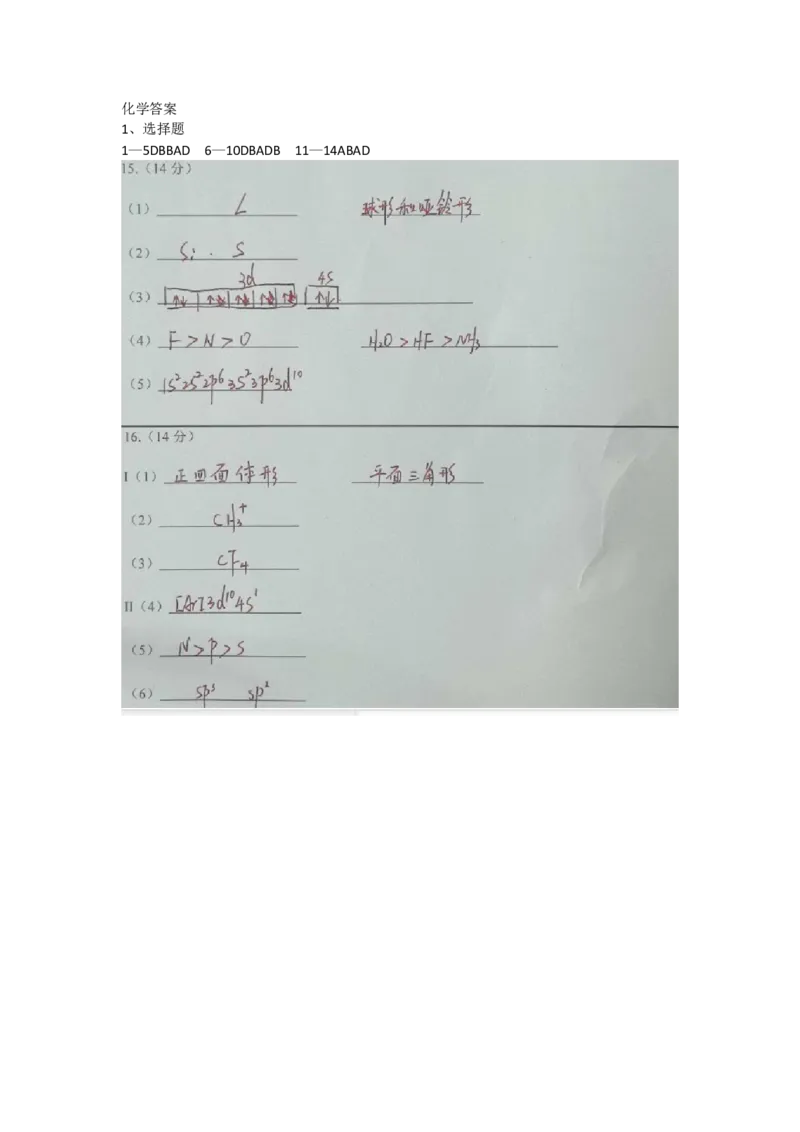 化学答案
1、选择题
1—5DBBAD 6—10DBADB 11—14ABAD
15.（14 分）
（1） L 球形和哑铃形
（2） Si . S
3d 4s
（3） ↑↓ ↑↓ ↑↓ ↑↓ ↑↓ ↑↓
（4） F>N>O H₂O>HF>NH₃
（5） 1s²2s²2p⁶3s²3p⁶3d¹⁰
16.（14 分）
I（1） 正四面体形 平面三角形
（2） CH₃⁺
（3） CF₄
II（4） [Ar]3d¹⁰4s¹
（5） N>P>S
（6） sp³ sp²